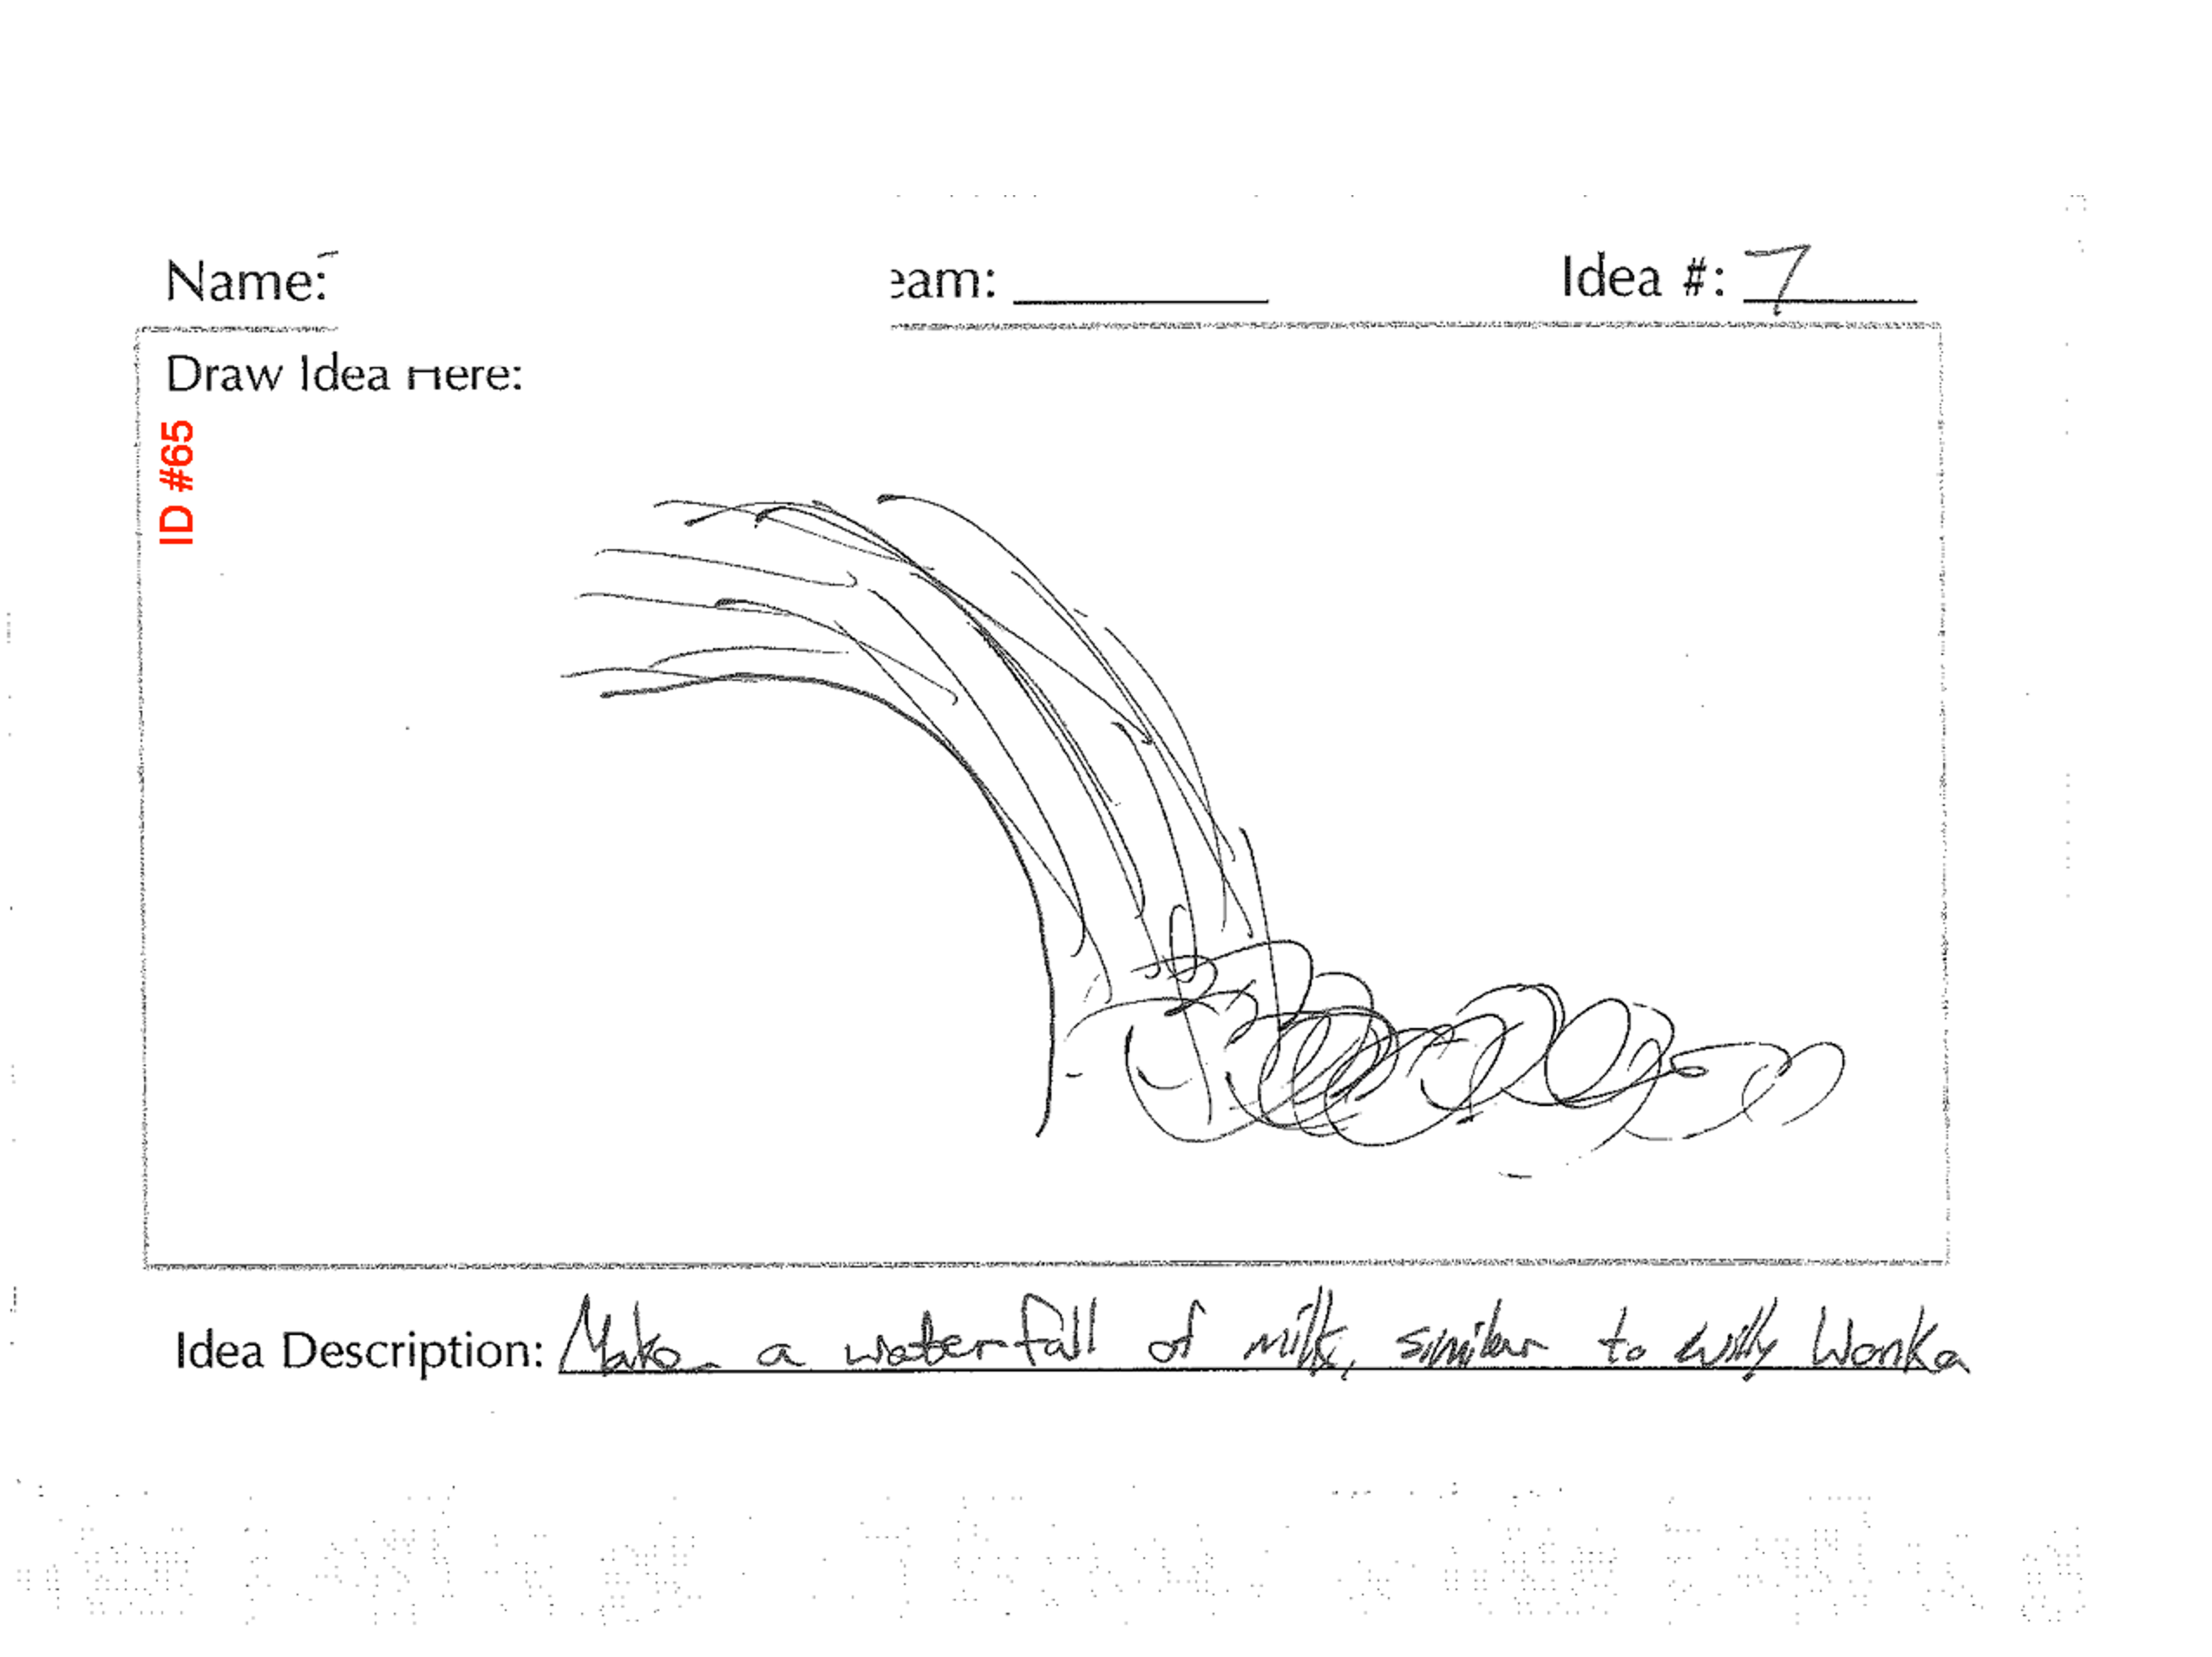 Name:
eam:
Idea #: 7
Draw Idea Here:
ID #65
Idea Description: Make a waterfall of milk, similar to willy Wonka